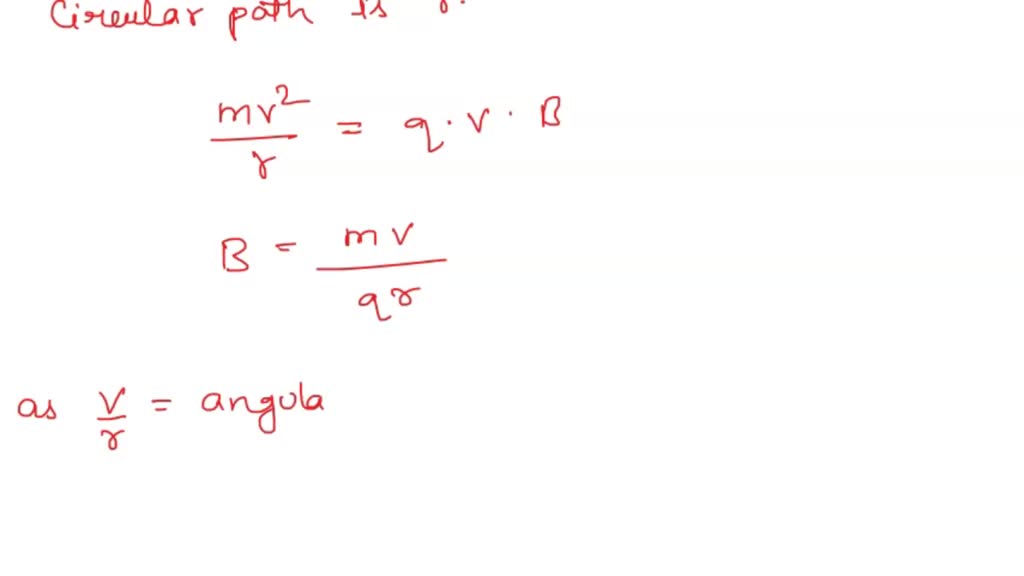 Circular path is r.
mv²/r = q · v · B
B = mv/qr
as v/r = angula